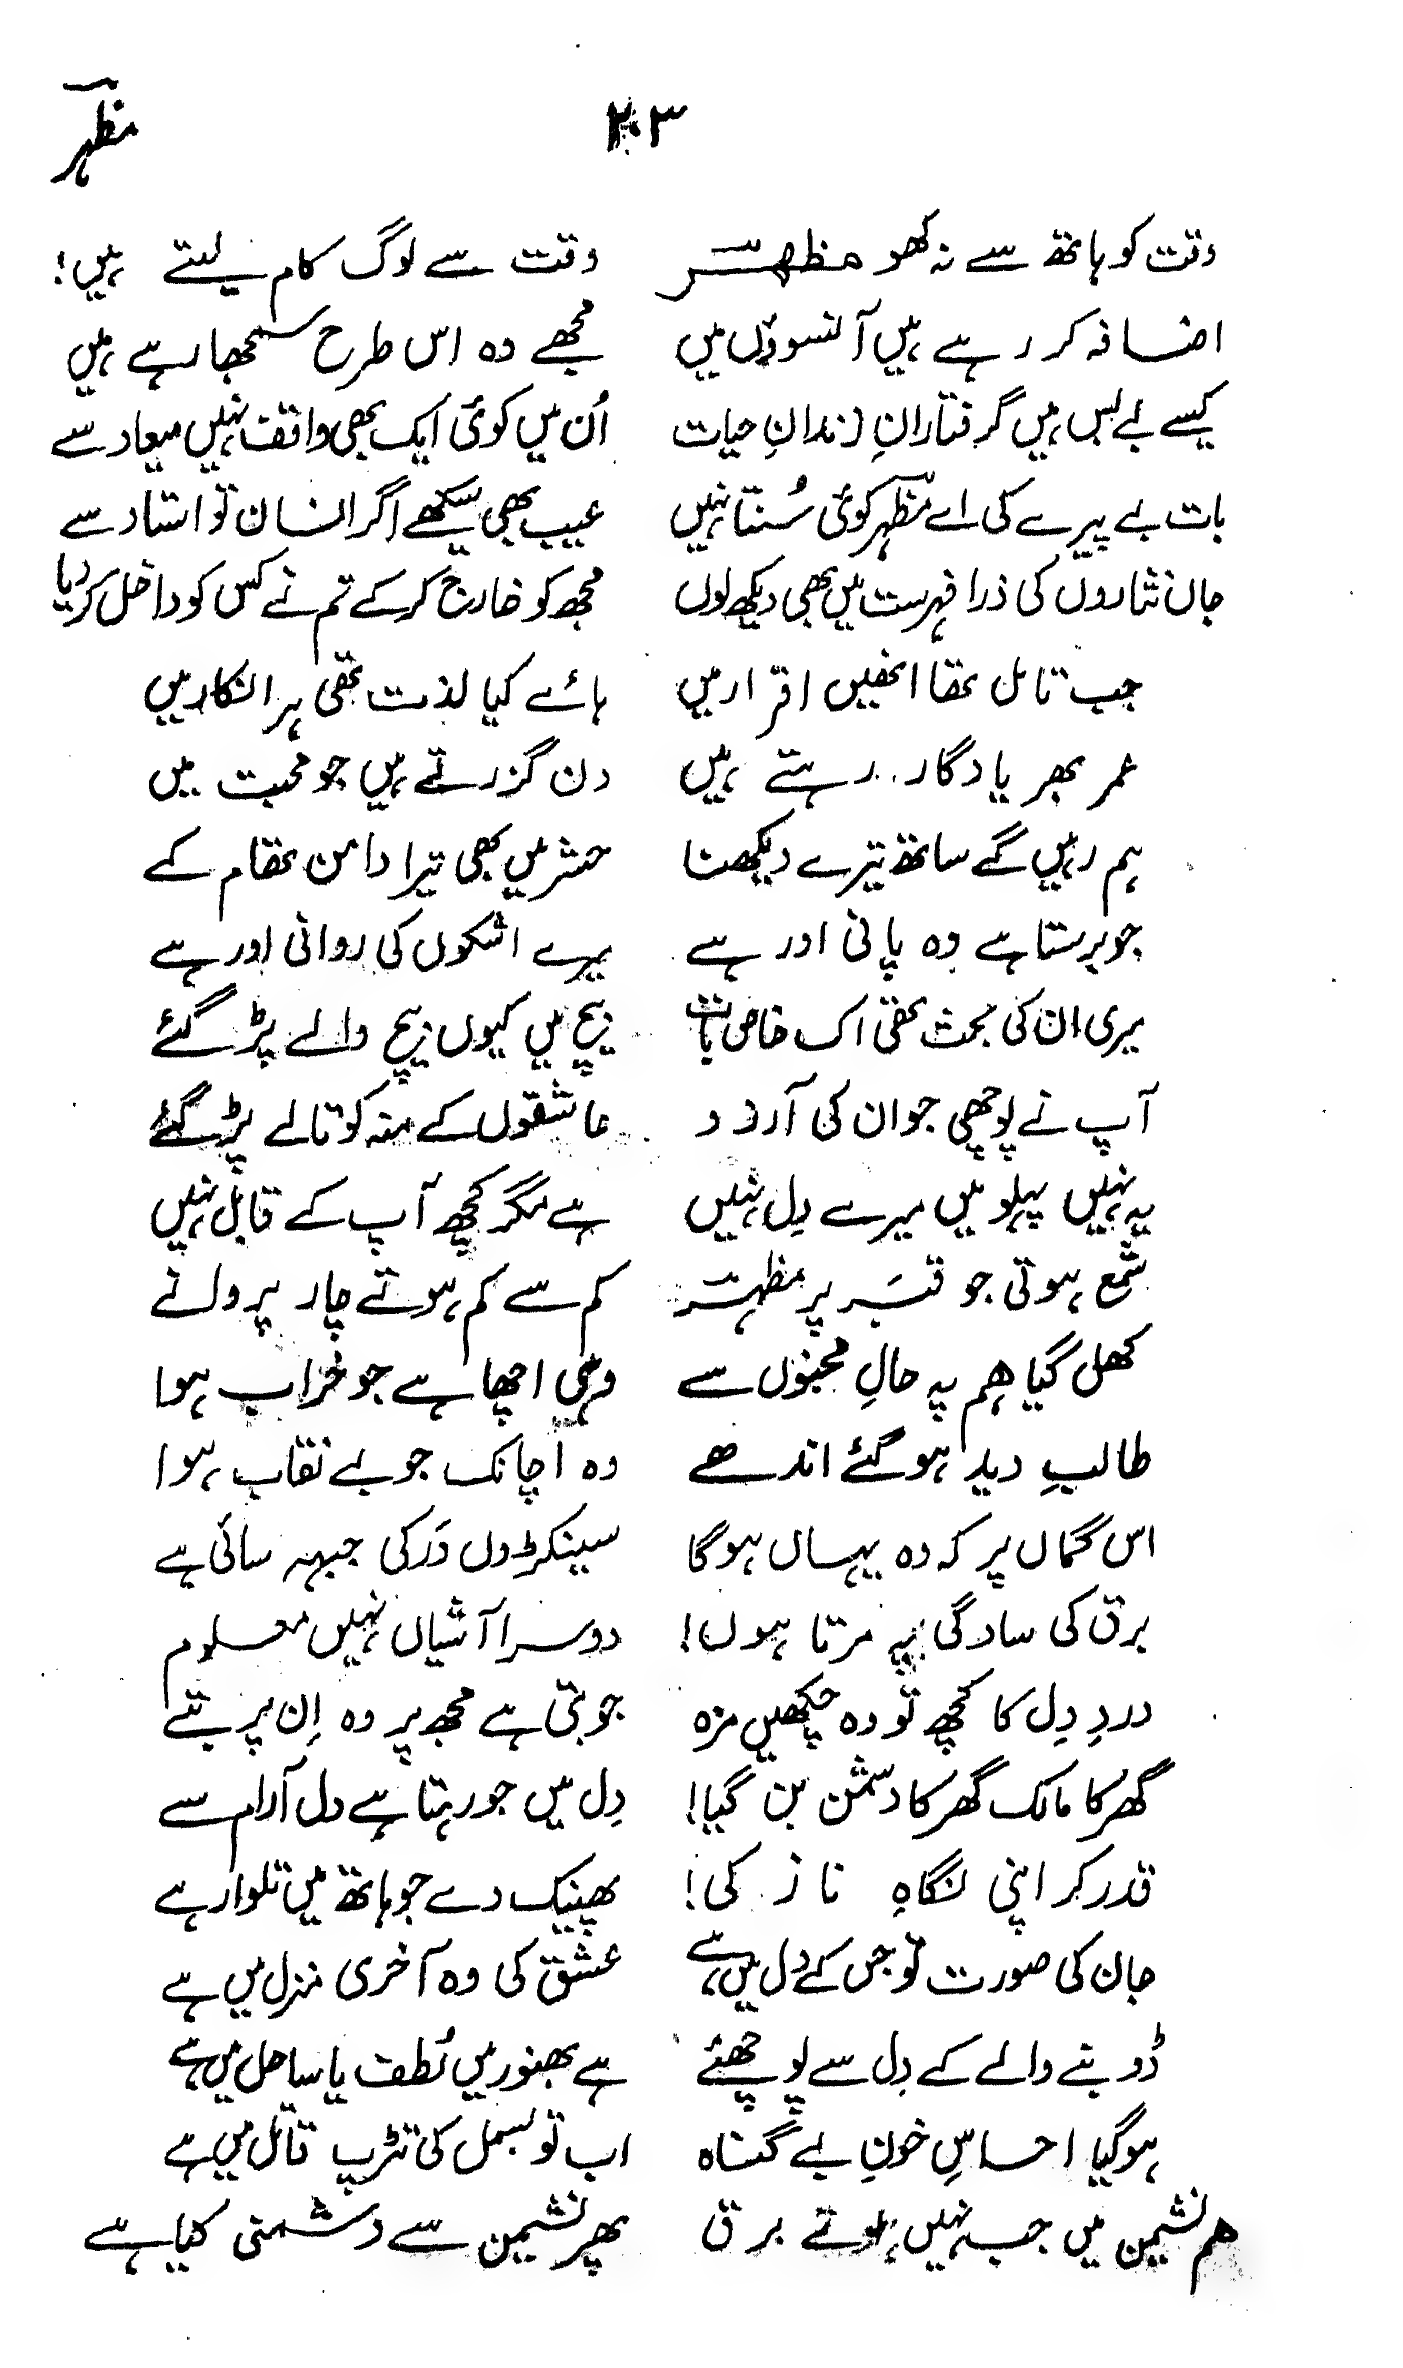 ۲۰۳ مظہر
وقت کو ہاتھ سے نہ کھو مظہر وقت سے لوگ کام لیتے ہیں!
اضافہ کر رہے ہیں آنسوؤں میں مجھے وہ اس طرح سمجھا رہے ہیں
کیسے بے بس ہیں گرفتارانِ زندانِ حیات اُن میں کوئی ایک بھی واقف نہیں میعاد سے
بات بے پیرے کی اے مظہر کوئی سُنتا نہیں عیب بھی سیکھے اگر انسان تو استاد سے
جان نثاروں کی ذرا فہرست میں بھی دیکھ لوں مجھ کو خارج کر کے تم نے کس کو داخل کر دیا
جب تامل تھا انھیں اقرار میں ہائے کیا لذت تھی ہر انکار میں
عمر بھر یادگار رہتے ہیں دن گزرتے ہیں جو محبت میں
ہم رہیں گے ساتھ تیرے دیکھنا حشر میں بھی تیرا دامن تھام کے
جو برستا ہے وہ پانی اور ہے میرے اشکوں کی روانی اور ہے
میری ان کی بحث تھی اک خاص بات بیچ میں کیوں بیچ والے پڑ گئے
آپ نے پوچھی جو ان کی آرزو عاشقوں کے منہ کو تالے پڑ گئے
یہ نہیں پہلو میں میرے دِل نہیں ہے مگر کچھ آپ کے قابل نہیں
شمع ہوتی جو قبر پر مظہر کم سے کم ہوتے چار پروانے
کھل گیا ہم پہ حالِ مجنوں سے وہی اچھا ہے جو خراب ہوا
طالبِ دید ہو گئے اندھے وہ اچانک جو بے نقاب ہوا
اس گماں پر کہ وہ یہاں ہوگا سینکڑوں دَر کی جبہہ سائی ہے
برق کی سادگی پہ مرتا ہوں! دوسرا آشیاں نہیں معلوم
دردِ دِل کا کچھ تو وہ چکھیں مزہ جو بنی ہے مجھ پر وہ اِن پر بنے
گھر کا مالک گھر کا دشمن بن گیا! دِل میں جو رہتا ہے دل آرام سے
قدر کر اپنی نگاہِ ناز کی! پھینک دے جو ہاتھ میں تلوار ہے
جان کی صورت تو جس کے دل میں ہے عشق کی وہ آخری منزل میں ہے
ڈوبنے والے کے دِل سے پوچھئے ہے بھنور میں لُطف یا ساحل میں ہے
ہو گیا احساسِ خونِ بے گناہ اب تو بسمل کی تڑپ قاتل میں ہے
ہم نشیمن میں جب نہیں ہوتے برق پھر نشیمن سے دشمنی کیا ہے